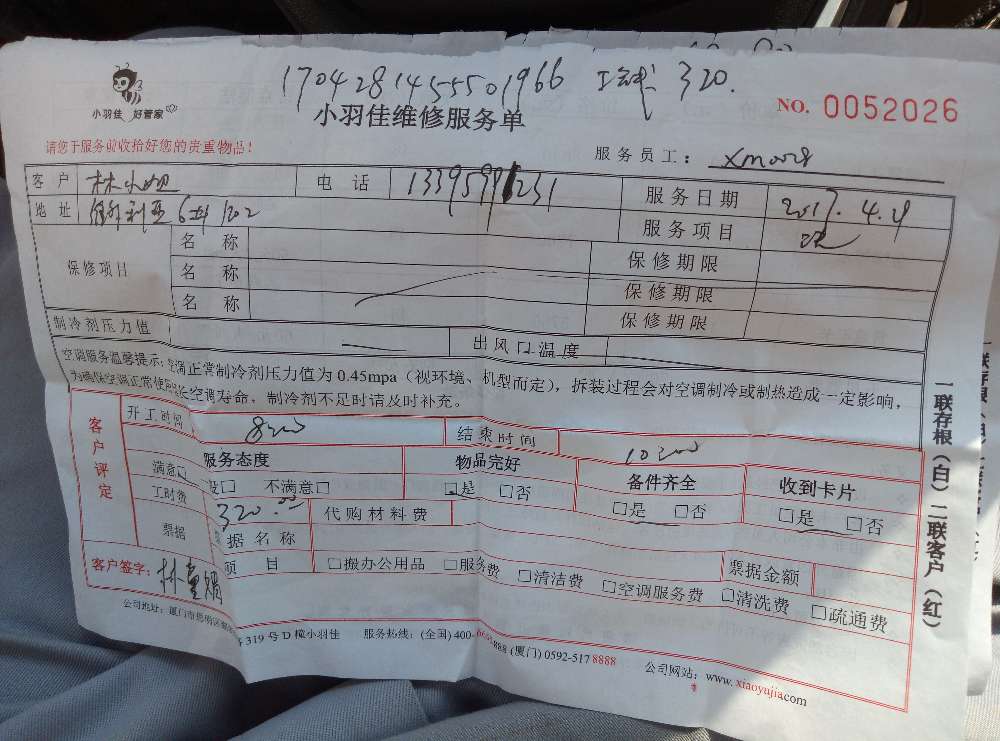 1704281455501966 320.
小羽佳 好管家
小羽佳维修服务单
NO. 0052026
请您于服务前收拾好您的贵重物品!
服务员工:
客 户 林小姐 电 话 服务日期 2017.4.
地 址 6# 1202 服务项目
保修项目 名 称 保修期限
名 称 保修期限
名 称 保修期限
制冷剂压力值 出风口温度
空调服务温馨提示:空调正常制冷剂压力值为0.45mpa(视环境、机型而定),拆装过程会对空调制冷或制热造成一定影响,
为确保空调正常使 长空调寿命,制冷剂不足时请及时补充。
客户评定
开工时间 8:00 结束时间 10:00
服务态度 物品完好 备件齐全 收到卡片
满意□ 般□ 不满意□ □是 □否 □是 □否 □是 □否
工时费 320.00 代购材料费
票据 据名称
项 目 □搬办公用品 □服务费 □清洁费 □空调服务费 □清洗费 □疏通费
票据金额
客户签字: 林
公司地址:厦门市思明区 319号D幢小羽佳 服务热线:(全国)400- 888 (厦门)0592-5178888 公司网站:www.xiaoyujia.com
一联存根(白)二联客户(红)